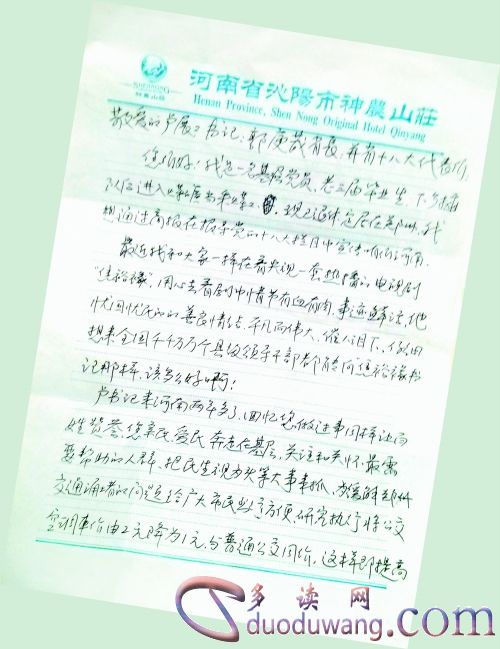 SHENNONG
神農山莊
河南省沁陽市神農山莊
Henan Province, Shen Nong Original Hotel Qinyang
敬爱的卢展工书记、郭庚茂省长,并省十八大代表们,
您们好!我是一名基层党员,老三届毕业生,下乡
队后进入,现已退休定居在郑州,我
想通过商报在报导党的十八大栏目中宣传咱们河南。
最近我和大家一样在看央视一套热播的电视剧
"焦裕禄",用心去看剧中情节有血有肉,事迹鲜活,他
忧国忧民的善良情结,平凡而伟大,催人泪下,
想来全国千千万万个县级领导干部都能向焦裕禄书
记那样,该多么好啊!
卢书记来河南两年多了,回忆您做过事同样让百
姓赞誉,您亲民、爱民、奔走在基层,关注和关怀最需
要帮助的人群,把民生视为头等大事来抓,为缓解郑州
交通拥堵的问题,给广大市民出行方便,研究执行将公交
空调车价由2元降为1元,与普通公交同价,这样即提高
多读网
duoduwang.com